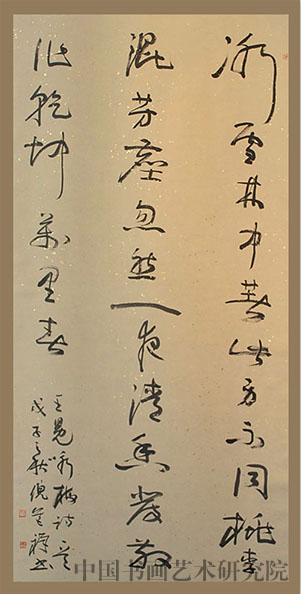 冰雪林中著此身不同桃李
混芳塵忽然一夜清香發散
作乾坤萬里春
王冕詠梅詩
戊子之秋倪書
中国书画艺术研究院